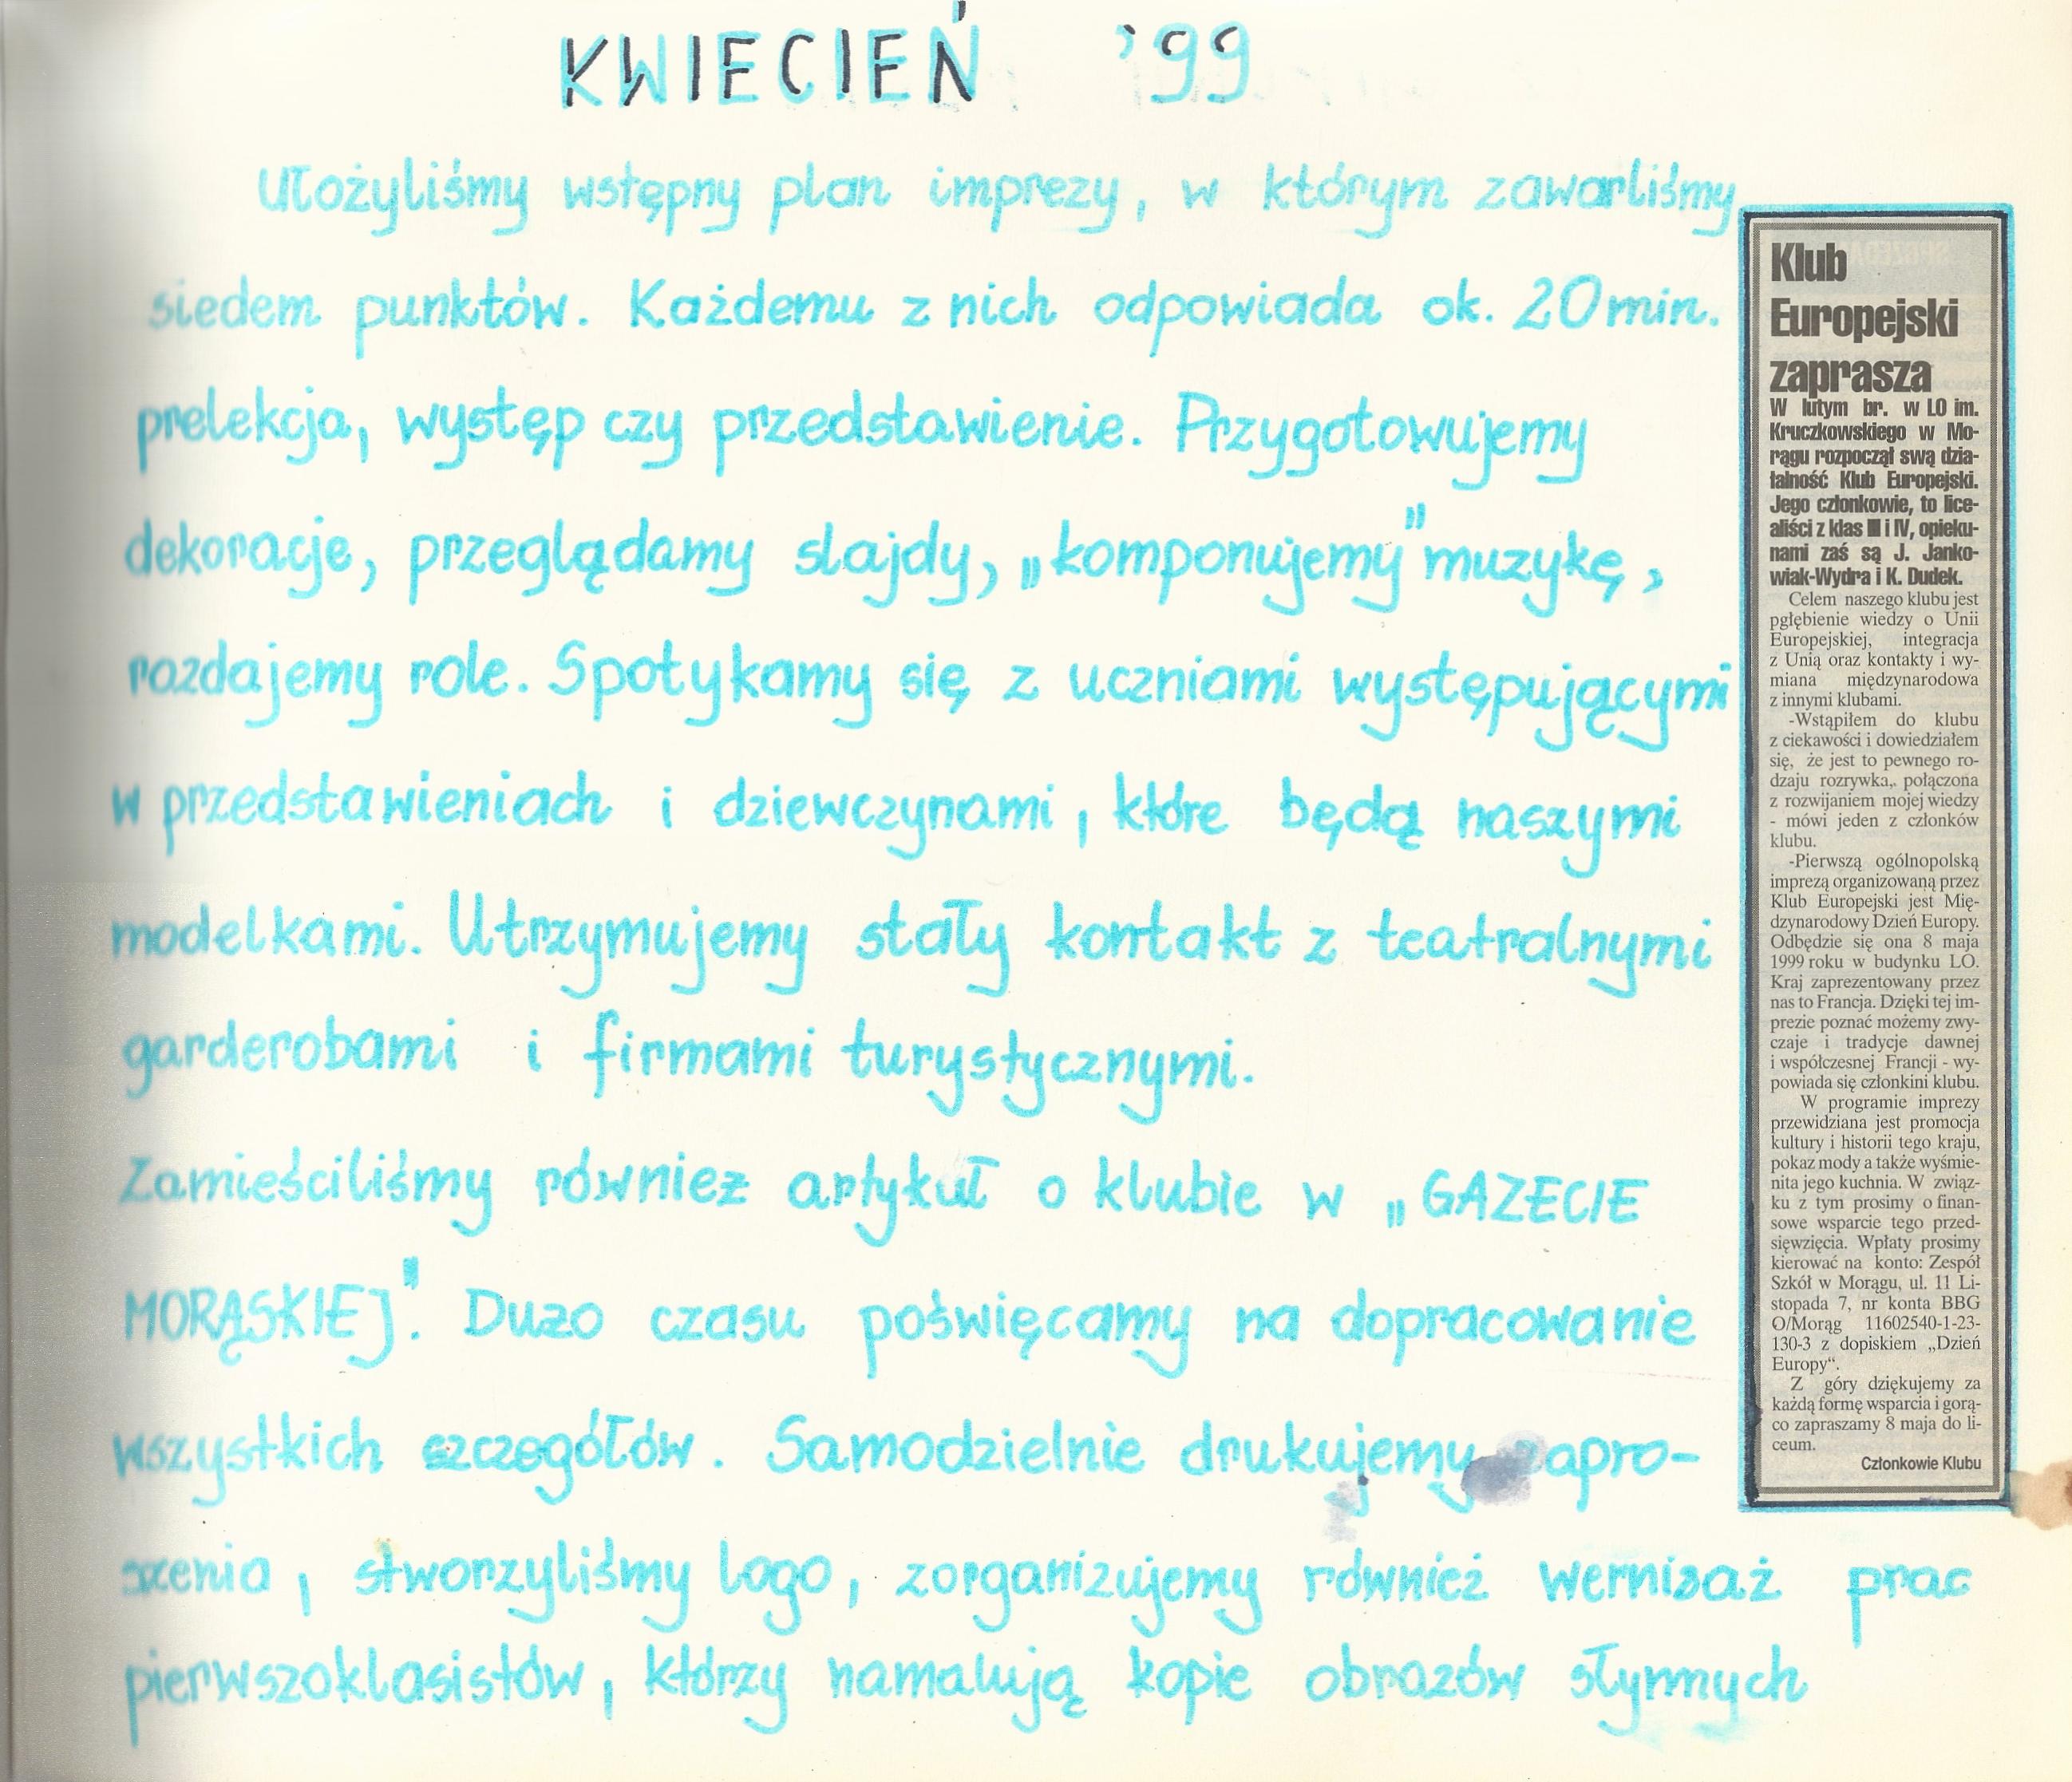 KWIECIEŃ '99
Ułożyliśmy wstępny plan imprezy, w którym zawarliśmy
siedem punktów. Każdemu z nich odpowiada ok. 20 min.
prelekcja, występ czy przedstawienie. Przygotowujemy
dekoracje, przeglądamy slajdy, „komponujemy" muzykę,
rozdajemy role. Spotykamy się z uczniami występującymi
w przedstawieniach i dziewczynami, które będą naszymi
modelkami. Utrzymujemy stały kontakt z teatralnymi
garderobami i firmami turystycznymi.
Zamieściliśmy również artykuł o klubie w „GAZECIE
MORĄSKIEJ". Dużo czasu poświęcamy na dopracowanie
wszystkich szczegółów. Samodzielnie drukujemy zapro-
szenia, stworzyliśmy logo, zorganizujemy również wernisaż prac
pierwszoklasistów, którzy namalują kopie obrazów słynnych
Klub
Europejski
zaprasza
W lutym br. w LO im.
Kruczkowskiego w Mo-
rągu rozpoczął swą dzia-
łalność Klub Europejski.
Jego członkowie, to lice-
aliści z klas III i IV, opieku-
nami zaś są J. Janko-
wiak-Wydra i K. Dudek.
Celem naszego klubu jest
pgłębienie wiedzy o Unii
Europejskiej, integracja
z Unią oraz kontakty i wy-
miana międzynarodowa
z innymi klubami.
-Wstąpiłem do klubu
z ciekawości i dowiedziałem
się, że jest to pewnego ro-
dzaju rozrywka,. połączona
z rozwijaniem mojej wiedzy
- mówi jeden z członków
klubu.
-Pierwszą ogólnopolską
imprezą organizowaną przez
Klub Europejski jest Mię-
dzynarodowy Dzień Europy.
Odbędzie się ona 8 maja
1999 roku w budynku LO.
Kraj zaprezentowany przez
nas to Francja. Dzięki tej im-
prezie poznać możemy zwy-
czaje i tradycje dawnej
i współczesnej Francji - wy-
powiada się członkini klubu.
W programie imprezy
przewidziana jest promocja
kultury i historii tego kraju,
pokaz mody a także wyśmie-
nita jego kuchnia. W związ-
ku z tym prosimy o finan-
sowe wsparcie tego przed-
sięwzięcia. Wpłaty prosimy
kierować na konto: Zespół
Szkół w Morągu, ul. 11 Li-
stopada 7, nr konta BBG
O/Morąg 11602540-1-23-
130-3 z dopiskiem „Dzień
Europy“.
Z góry dziękujemy za
każdą formę wsparcia i gorą-
co zapraszamy 8 maja do li-
ceum.
Członkowie Klubu